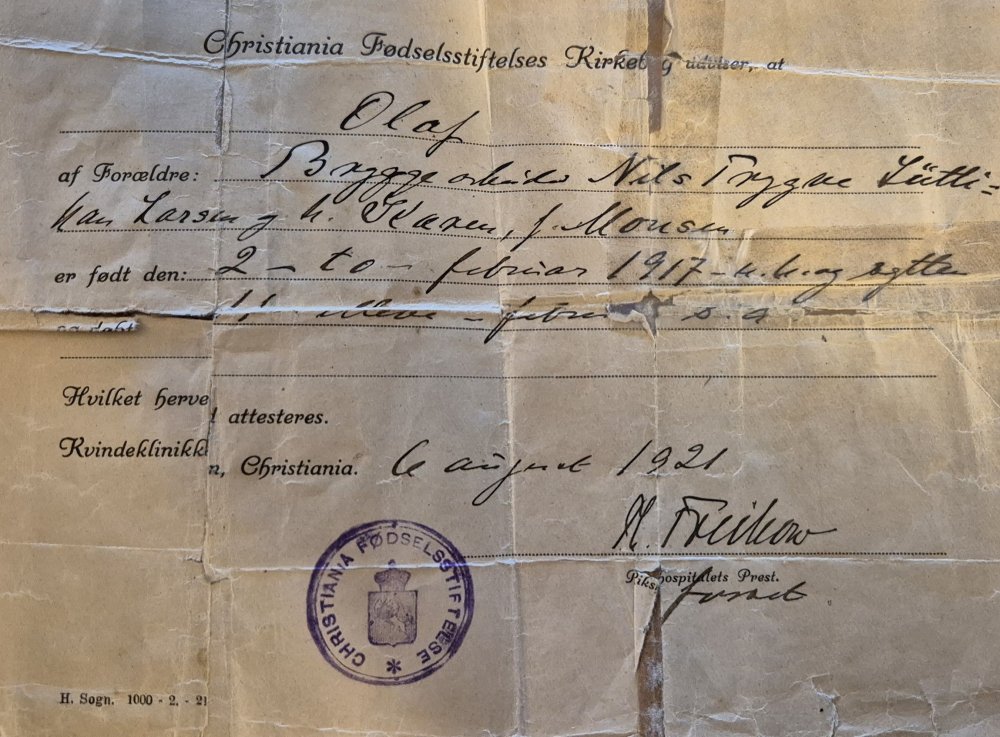 Christiania Fødselsstiftelses Kirkebog udviser, at
Olaf
af Forældre: Bryggearbeider Nils Trygve
Larsen og h. Karen, f. Monsen
er født den: 2 - to - februar 1917 - n.h. og ægte
og døbt 11 - elleve - februar s.a
Hvilket herved attesteres.
Kvindeklinikken, Christiania. 6 august 1921
H.
Pikehospitalets Prest.
CHRISTIANIA FØDSELSSTIFTELSE *
H. Sogn. 1000 - 2. - 21